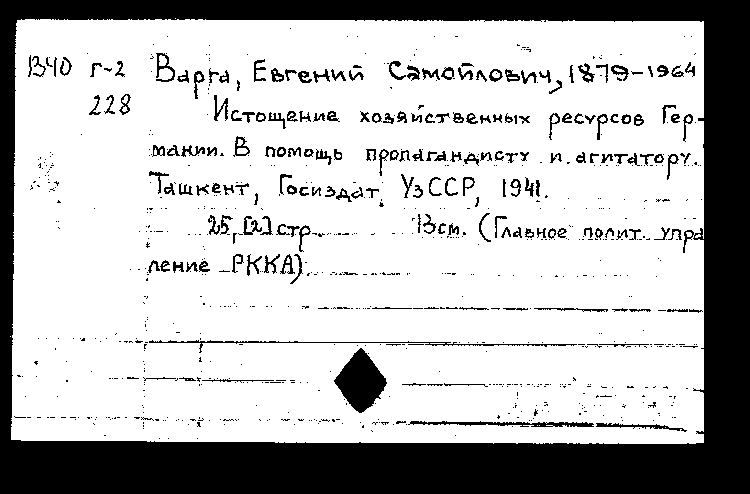 В40 г-2 Варга, Евгений Самойлович, 1879-1964
228 Истощение хозяйственных ресурсов Гер-
мании. В помощь пропагандисту и агитатору.
Ташкент, Госиздат УзССР, 1941.
25, [2] стр. 13см. (Главное полит. упра
ление РККА)